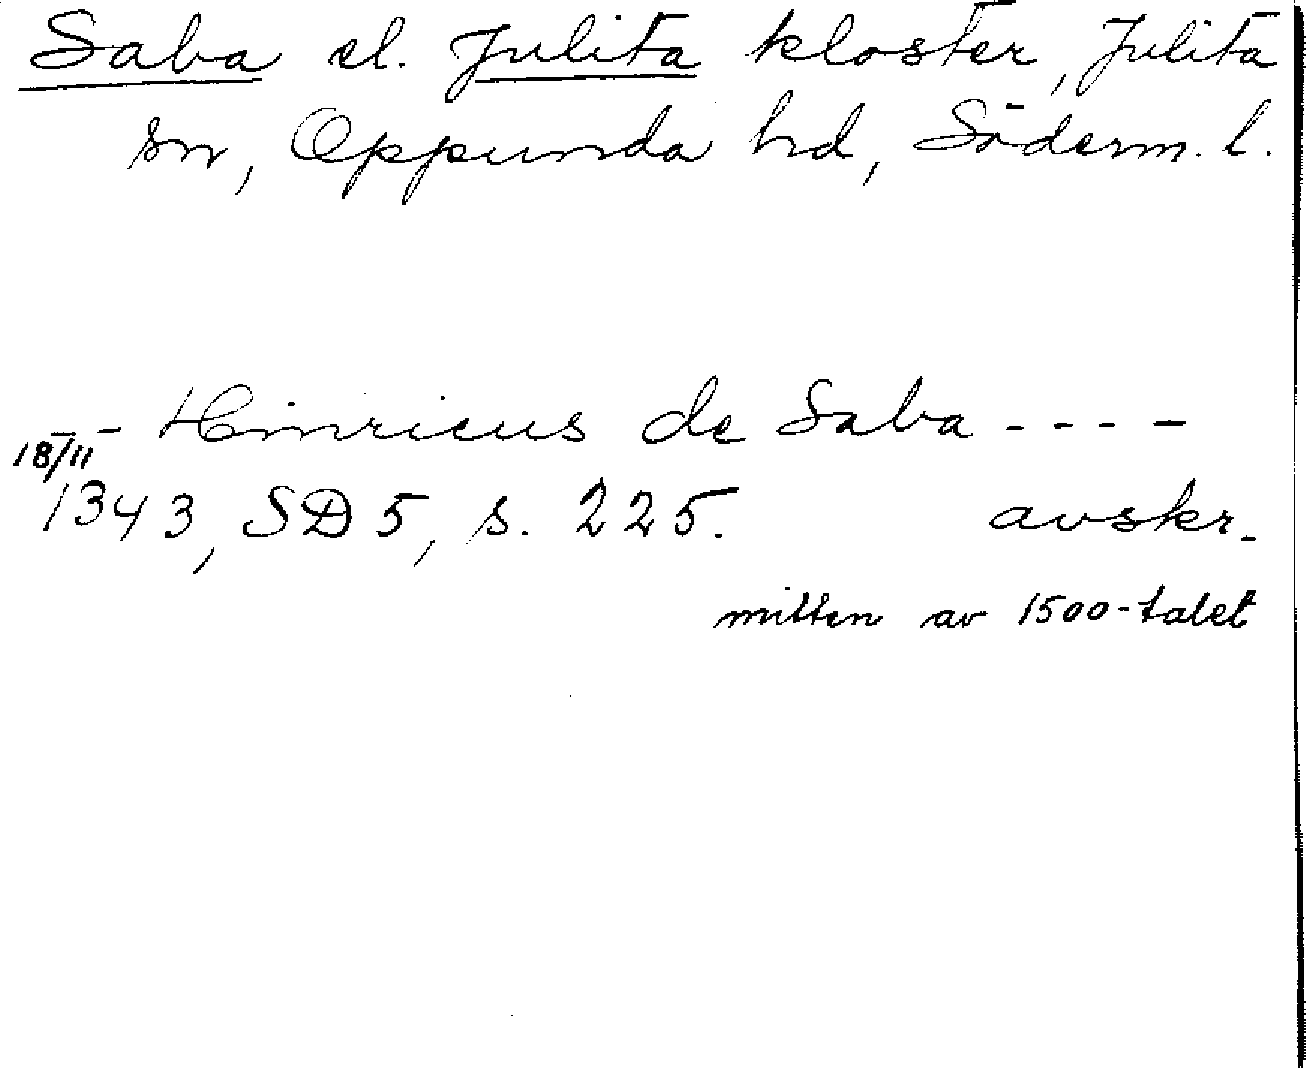 Saba el. Julita kloster, Julita
sn, Oppunda hd, Söderm. l.
- - - Hinricus de Saba - - - -
18/11
1343, SD 5, s. 225. avskr.
mitten av 1500-talet